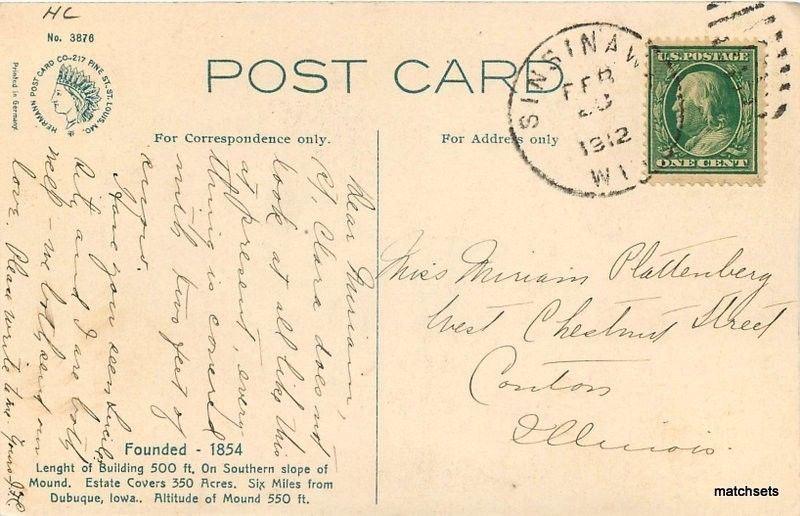 HC
No. 3876
HERMANN POST CARD CO-217 PINE ST. ST. LOUIS, MO.
Printed in Germany.
POST CARD.
SINSINAWA
FEB
1912
WIS
U.S. POSTAGE
ONE CENT
For Correspondence only.
For Address only
Dear Miriam,
St. Clara does not
look at all like this
at present, every-
thing is covered
with two feet of
snow.
Have you seen Lucile
Rita and I are both
well - we both send our
love. Please write to me. Yours J.H.C.
Miss Miriam Plattenberg
West Chestnut Street
Canton
Illinois.
Founded - 1854
Lenght of Building 500 ft. On Southern slope of
Mound. Estate Covers 350 Acres. Six Miles from
Dubuque, Iowa.. Altitude of Mound 550 ft.
matchsets